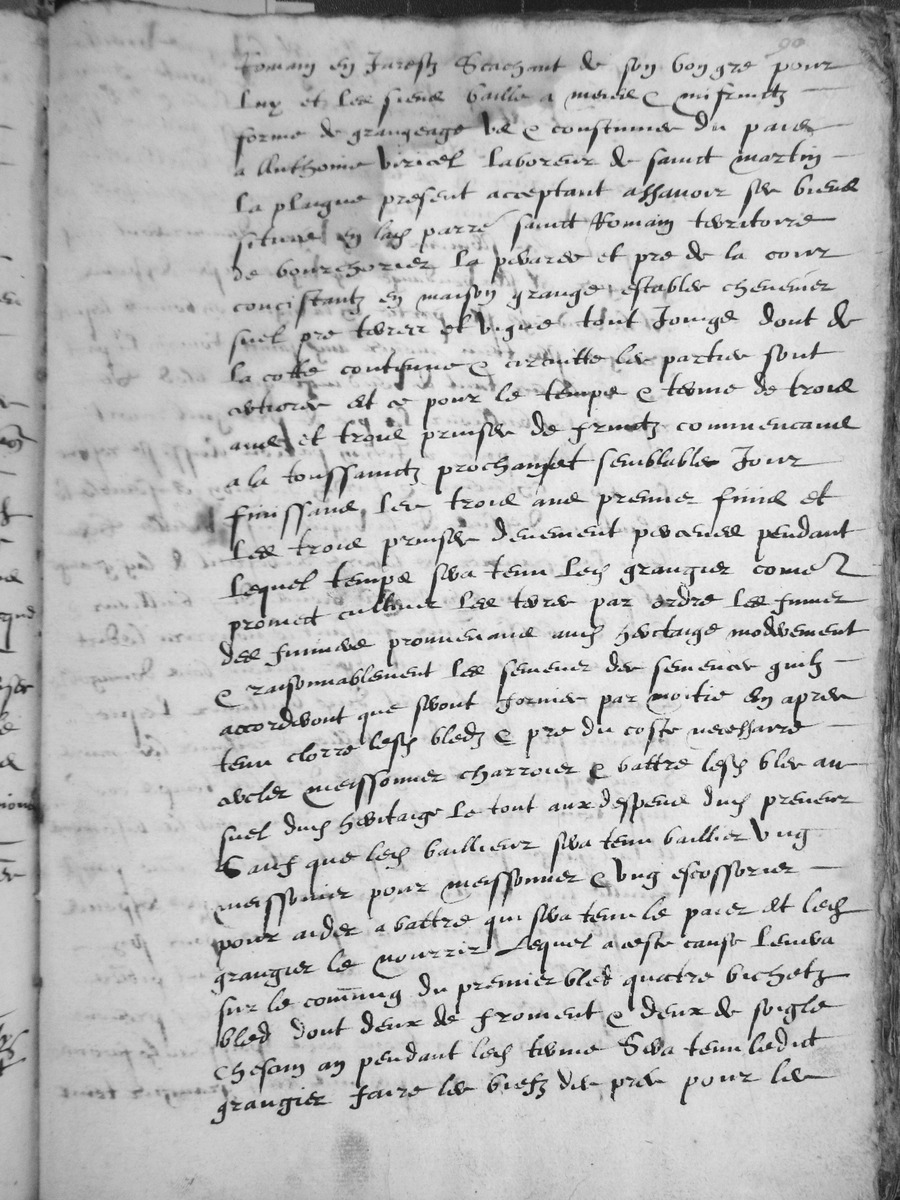 Romain en Jarestz Scachant de son bon gre pour
luy et les siens baille a moitie & mifruictz
forme de grangeage us & coustume du pais
a Anthoine viricel laboreur de sainct martin
la plaigne present acceptant assavoir ses biens
situes en lad parre sainct Romain territoire
de bourchorier la pivares et pre de la cour
concistantz en maison grange estables chenevier
suel pre terres et vigne tout Joinge dont de
la cotte contenue & circuitte les parties sont
certiores et ce pour le temps & terme de trois
ans et trois prinses de fruictz commencans
a la toussainctz prochain et semblables Jour
finissans les trois ans premier finis et
les trois prinses deuement perceues pendant
lequel temps sera tenu led grangier come
promect cultiver les terres par ordre les fumer
des fumiers provenans aud heritaige moderement
& raisonnablement les semener des semences quilz
accorderont que seront fornies par moitie en apres
tenu clorre lesd bledz & pre du coste necessaire
cercler meissonner charroier & battre lesd bles au
suel dud heritaige le tout aux despens dud preneur
Sauf que led baillieur sera tenu baillier ung
meissonnier pour meissonner & ung escossorier
pour aider a battre qui sera tenu le paier et led
grangier le nourrir lequel a ceste cause levera
sur le commung du premier bled quattre bichetz
bled dont deux de froment & deux de soigle
chescun an pendant led terme Sera tenu ledict
grangier faire les biefz des pres pour les